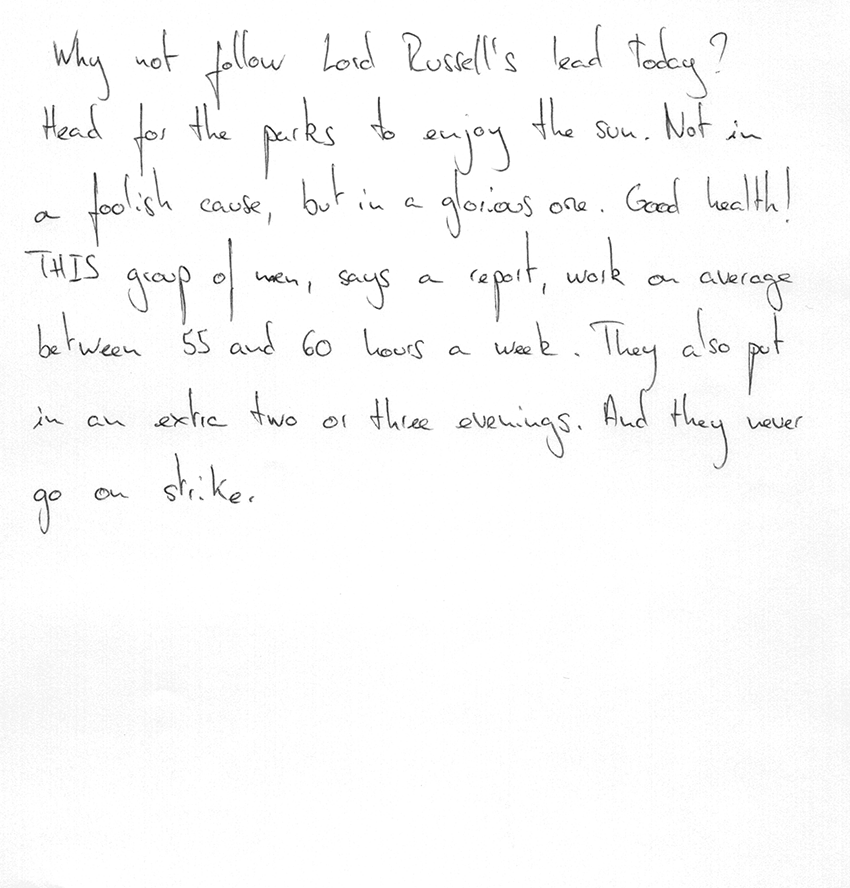 Why not follow Lord Russell's lead today?
Head for the parks to enjoy the sun. Not in
a foolish cause, but in a glorious one. Good health!
THIS group of men, says a report, work on average
between 55 and 60 hours a week. They also put
in an extra two or three evenings. And they never
go on strike.